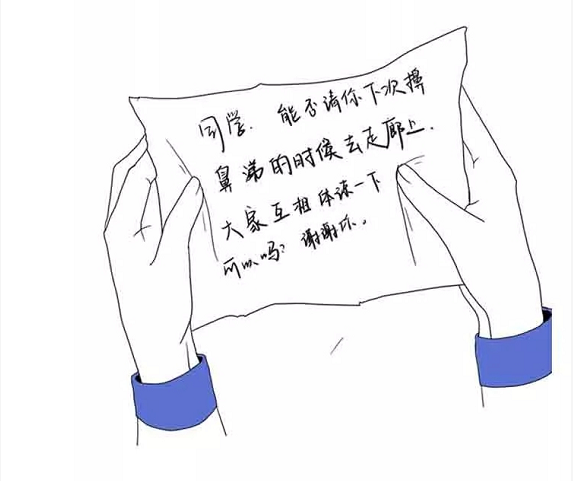 同学.能否请你下次擤
鼻涕的时候去走廊上.
大家互相体谅一下
可以吗?谢谢你。